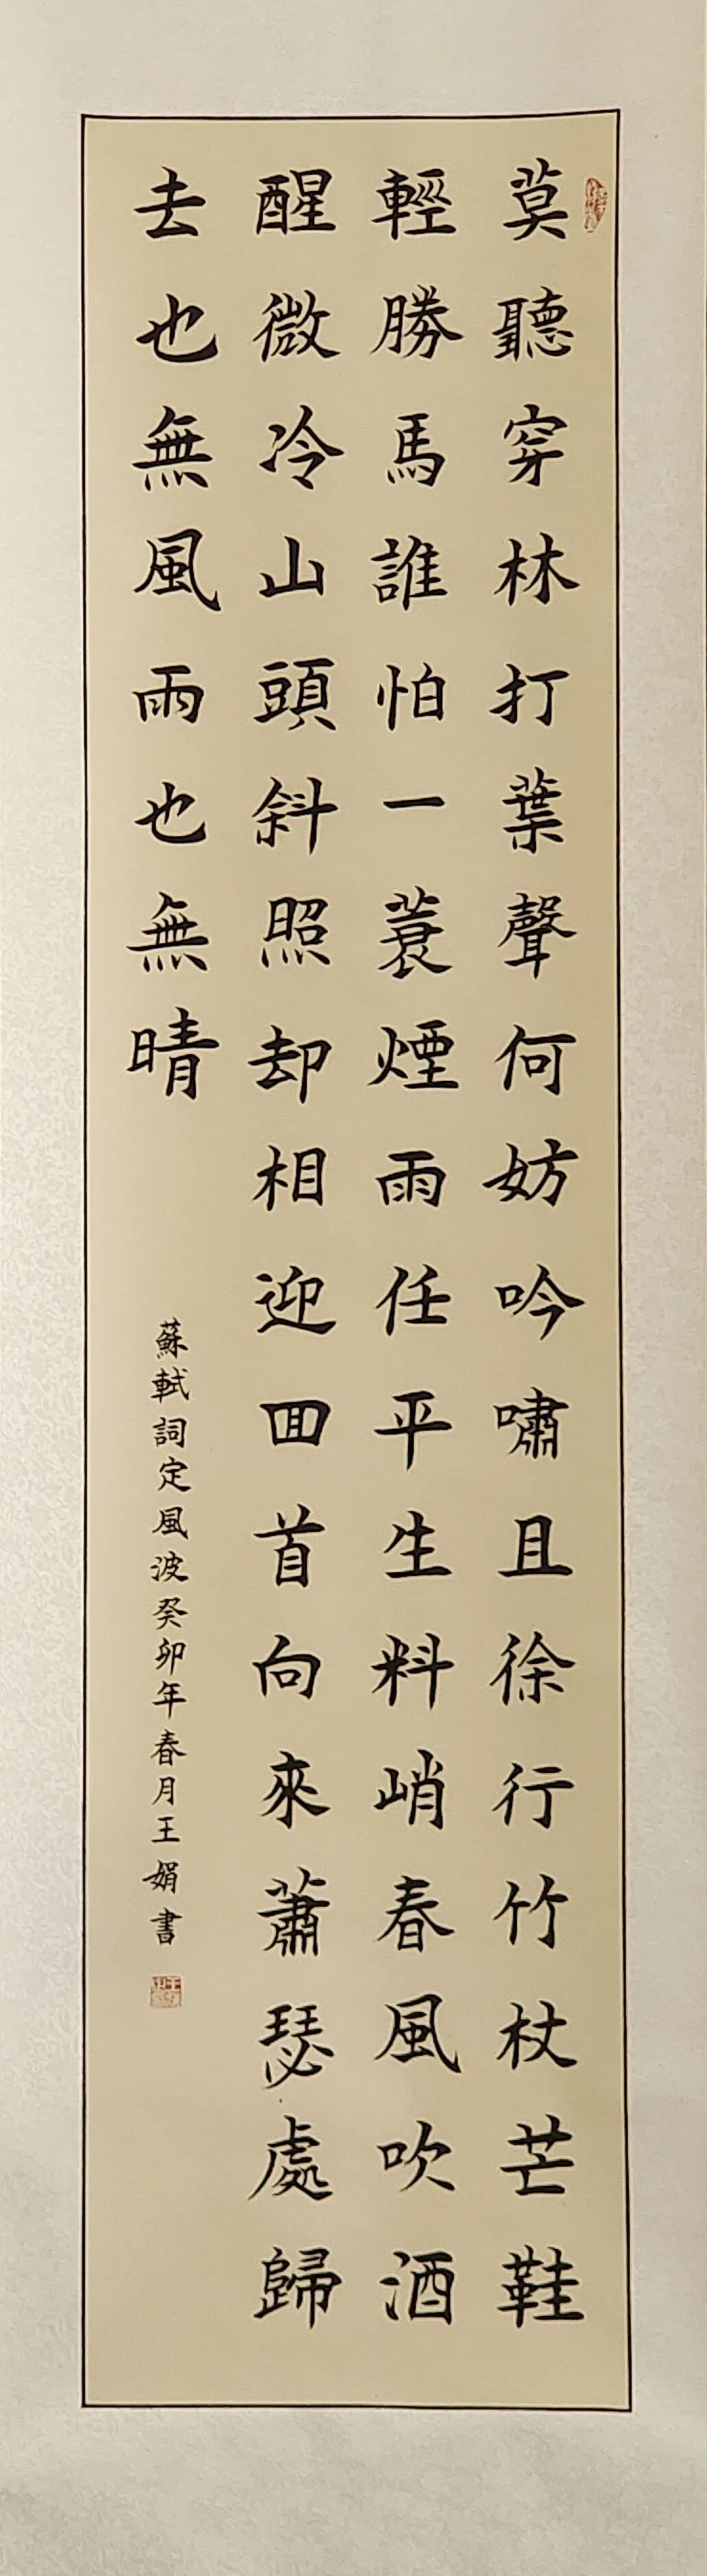 莫聽穿林打葉聲何妨吟嘯且徐行竹杖芒鞋
輕勝馬誰怕一蓑煙雨任平生料峭春風吹酒
醒微冷山頭斜照却相迎回首向來蕭瑟處歸
去也無風雨也無晴
蘇軾詞定風波癸卯年春月王娟書